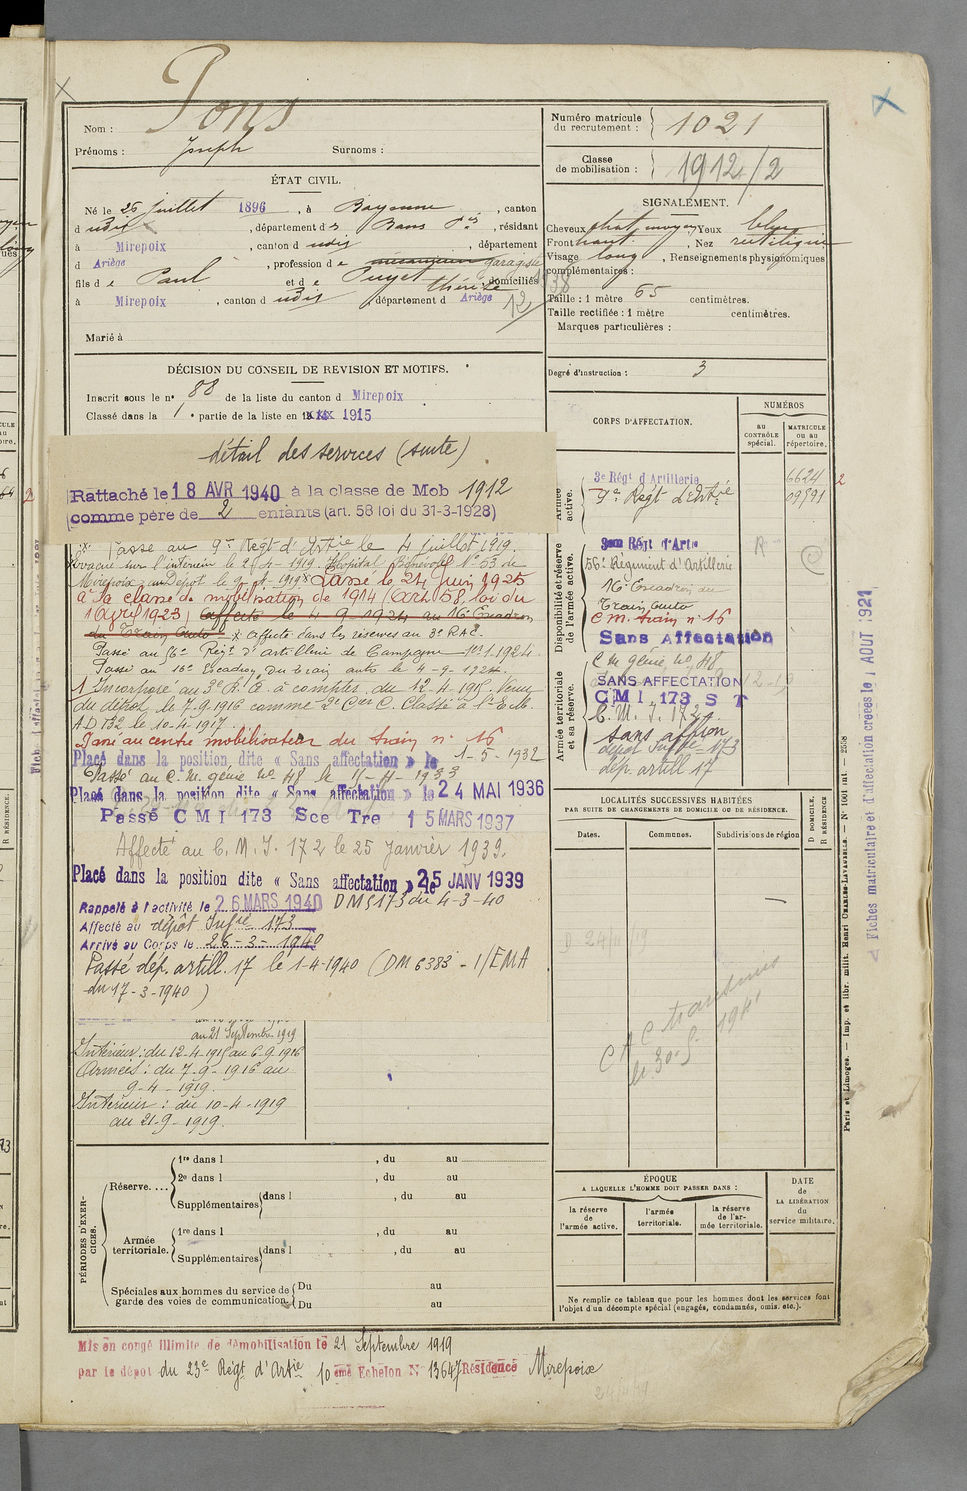 Pons
Nom :
Prénoms : Joseph Surnoms :
ÉTAT CIVIL.
Né le 26 juillet 1896, à Bayonne, canton
d udit, département des Bases Pées, résidant
à Mirepoix, canton d udit, département
d Ariège, profession de garagiste
fils de Paul et de Puget Thérèse domiciliés
à Mirepoix, canton d udit, département d Ariège
12
1938
Marié à
DÉCISION DU CONSEIL DE REVISION ET MOTIFS.
Inscrit sous le n° 88 de la liste du canton d Mirepoix
Classé dans la 1re partie de la liste en 1915
détail des services (suite)
Rattaché le 18 AVR 1940 à la classe de Mob 1912
comme père de 2 enfants (art. 58 loi du 31-3-1928)
Passé au 9e Régt d'Artie le 4 juillet 1919.
Evacué sur l'intérieur le 2-4-1919. Hôpital Bénévole N° 53 de
Mirepoix, au Dépot le 9-4-1919 Passé le 24 juin 1925
à la classe de mobilisation de 1914 (Art. 58, loi du
1 Avril 1923) affecté le 4-9-1924 au 16e Escadron
du Train Auto x affecté dans les réserves au 3e RAC.
Passé au 56e Régt d'artillerie de Campagne 1er.1.1924
Passé au 16e Escadron Du train auto le 4-9-1924
1 Incorporé au 3e R. A. à compter du 12-4-1915. Venu
du dépot le 7.9.1916 comme 2e Cer C. Classé à l'E.M.
A D 132 le 10-4-1917.
Passé au centre mobilisateur du train n° 16
Placé dans la position dite « Sans affectation » le 1-5-1932
Passé au C. M. génie No 48 le 15-4-1933
Placé dans la position dite « Sans affectation » le 24 MAI 1936
Passé C M I 173 Sce Tre 15 MARS 1937
Affecté au C. M. I. 172 le 25 Janvier 1939.
Placé dans la position dite « Sans affectation » le 25 JANV 1939
Rappelé à l'activité le 26 MARS 1940 DM 5173 du 4-3-40
Affecté au dépôt Infie 173
Arrivé au Corps le 26-3-1940
Passé dép. artill. 17 le 1-4-1940 (DM 6383 - 1/EMA
du 17-3-1940)
au 21 Septembre 1919
Intérieur : du 12-4-1915 au 6-9-1916
Armées : du 7-9-1916 au
9-4-1919.
Intérieur : du 10-4-1919
au 21-9-1919.
PÉRIODES D'EXERCICES.
Réserve....
1re dans l , du au
2e dans l , du au
Supplémentaires dans l , du au
Armée territoriale.
1re dans l , du au
Supplémentaires dans l , du au
Spéciales aux hommes du service de garde des voies de communication.
Du au
Du au
Mis en congé illimité de démobilisation le 21 Septembre 1919
par le dépot du 23e Régt d'Artie 10 ème Echelon N° 13647 Résidence Mirepoix
Numéro matricule
du recrutement : 1021
Classe
de mobilisation : 1912/2
SIGNALEMENT.
Cheveux chat. moyen, Yeux bleus
Front haut, Nez rectiligne
Visage long, Renseignements physionomiques
complémentaires :
Taille : 1 mètre 65 centimètres.
Taille rectifiée : 1 mètre centimètres.
Marques particulières :
Degré d'instruction : 3
CORPS D'AFFECTATION.
NUMÉROS
au CONTRÔLE spécial.
MATRICULE ou au répertoire.
Armée active.
3e Régt d'Artillerie 6624
9e Régt d'Artie 09591
2
Disponibilité et réserve de l'armée active.
3eme Régt d'Artie R
56e Régiment d'Artillerie
16e Escadron du
Train Auto
C m. train n° 16
Sans Affectation
Armée territoriale et sa réserve.
C M génie No 48
SANS AFFECTATION
C M I 173 S T
C. M. I. 172
sans affion
dépôt Infie 173
dép. artill 17
LOCALITÉS SUCCESSIVES HABITÉES
PAR SUITE DE CHANGEMENTS DE DOMICILE OU DE RÉSIDENCE.
Dates.
Communes.
Subdivisions de région
D DOMICILE,
R RÉSIDENCE
D - 24/11/19
C A C
le 30-5-1941
ÉPOQUE
A LAQUELLE L'HOMME DOIT PASSER DANS :
la réserve
de
l'armée active.
l'armée
territoriale.
la réserve
de l'ar-
mée territoriale.
DATE
de
LA LIBÉRATION
du
service militaire.
Ne remplir ce tableau que pour les hommes dont les services font
l'objet d'un décompte spécial (engagés, condamnés, omis. etc.).
24/11/19
Paris et Limoges. — Imp. et libr. milit. Henri CHARLES-LAVAUZELLE. — N° 1001 int. — 2558
Fiches matriculaire et d'affectation créées le 1 AOUT 1921